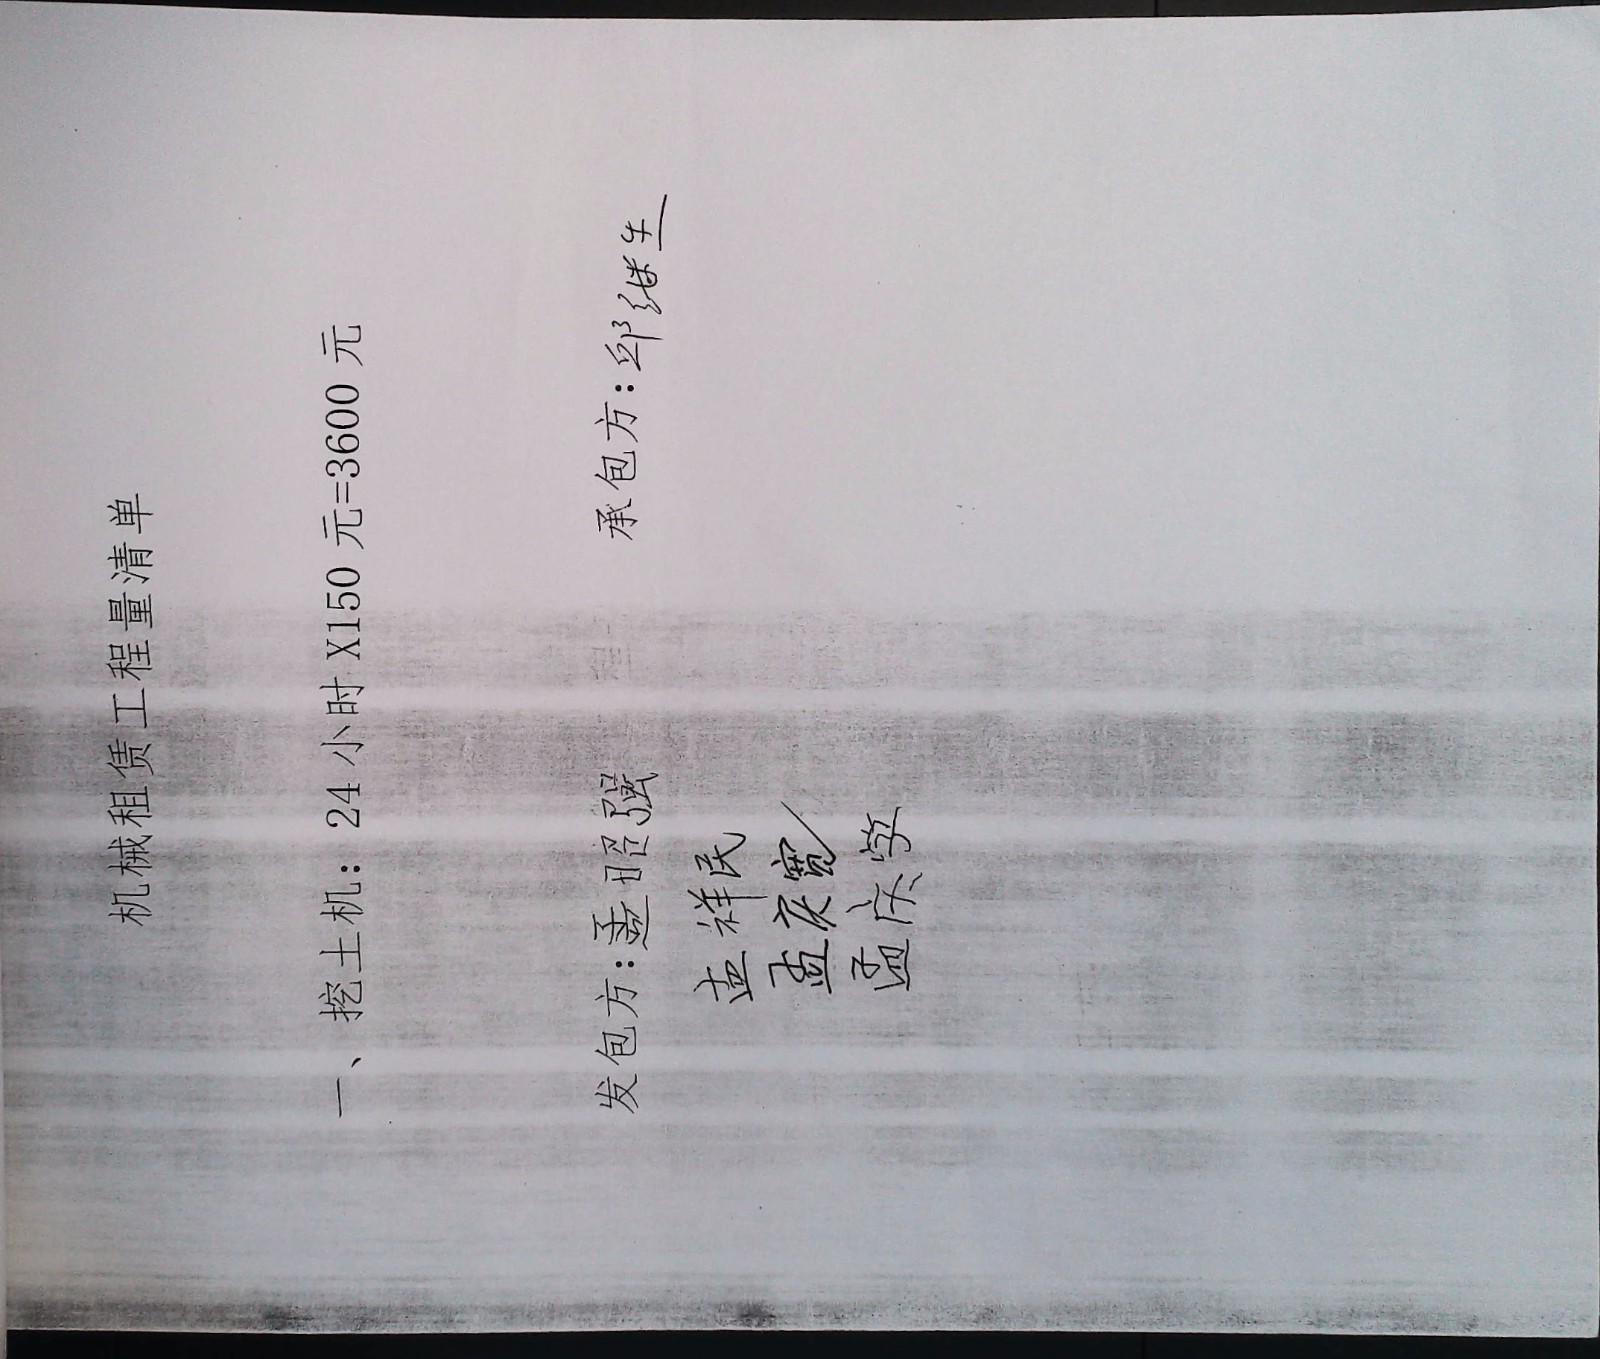 机械租赁工程量清单
一、挖土机：24 小时 X150 元=3600 元
发包方：孟昭强 承包方：邱继生
孟祥民
孟庆宽
孟庆学